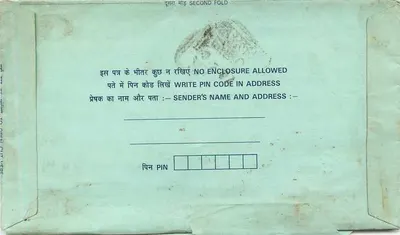 दूसरा मोड़ SECOND FOLD
इस पत्र के भीतर कुछ न रखिए NO ENCLOSURE ALLOWED
पते में पिन कोड लिखें WRITE PIN CODE IN ADDRESS
प्रेषक का नाम और पता :— SENDER'S NAME AND ADDRESS :—
पिन PIN